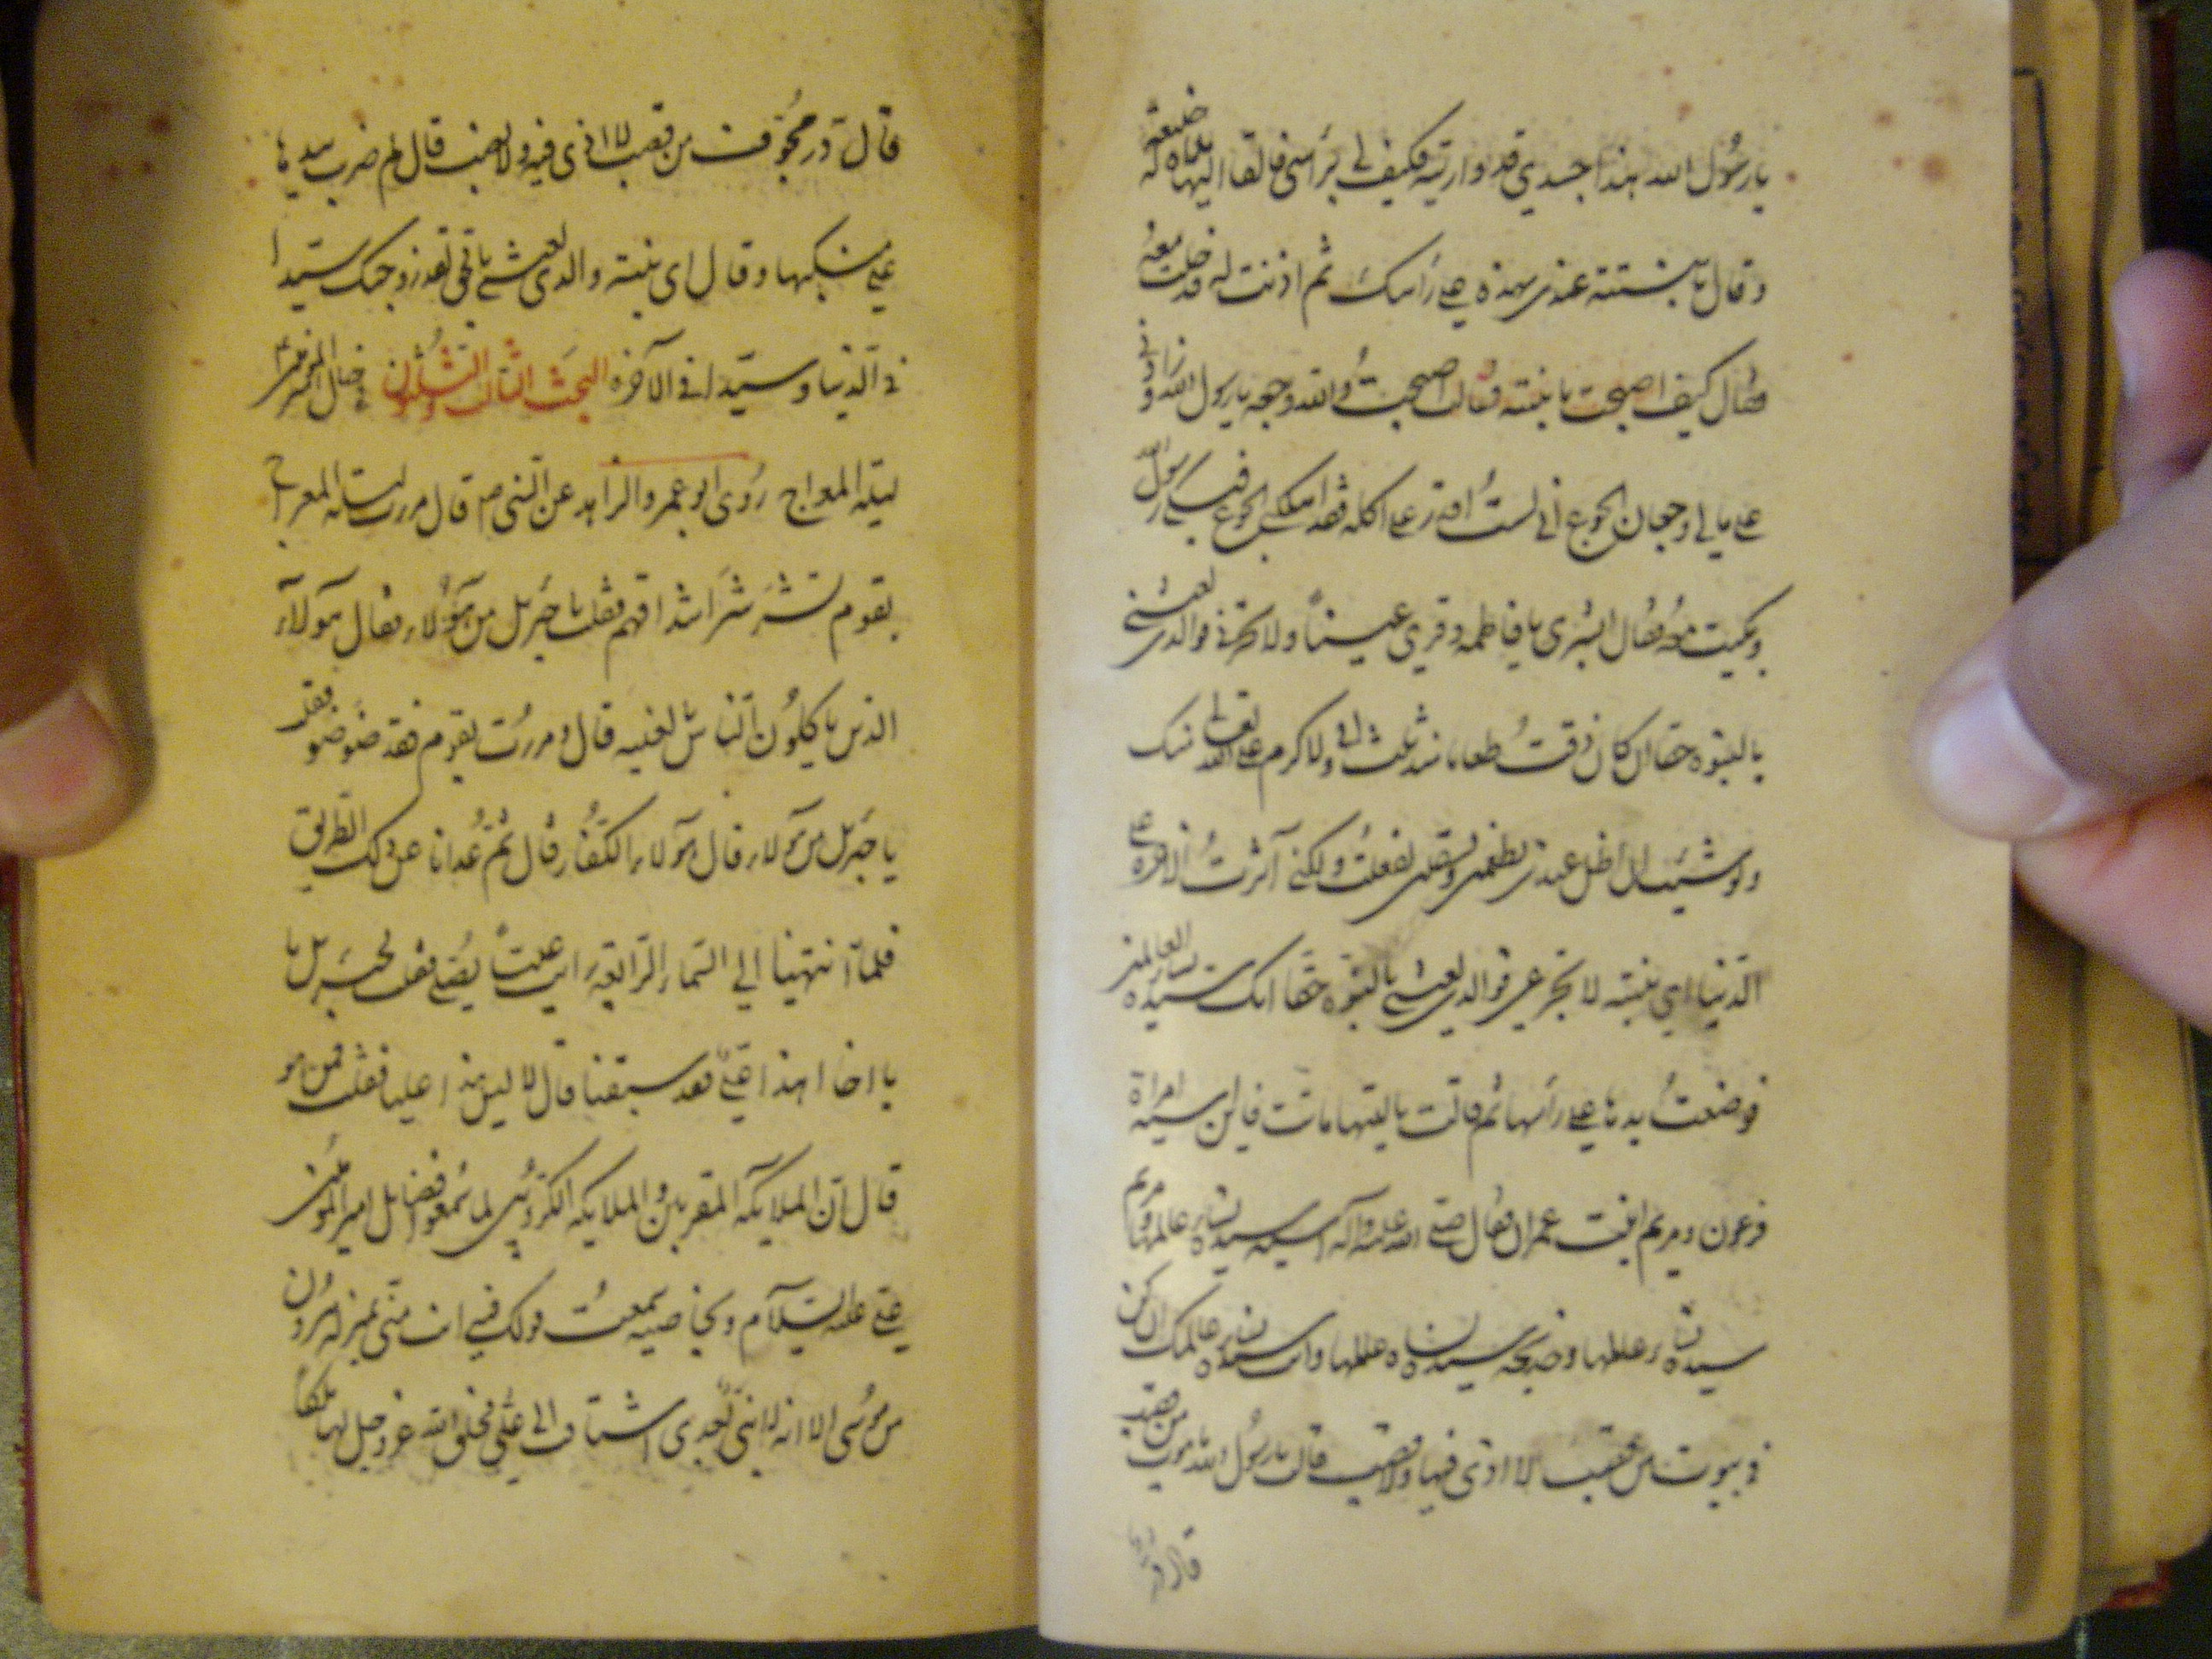 يا رسول الله هذا جسدي قد واريته فكيف لي برأسي فالقا اليها ملاة له ضيقة
وقال يا بنيته عندي بهذه على رأسك ثم اذنت له فدخلت معه
فقال كيف اصبحت يا بنيته فقالت اصبحت والله وجعه يا رسول الله وزادني
على ما بي وجعا من الجوع اني لست اقدر على اكله فقد اهلكني الجوع فبكى رسول الله
وبكيت معه فقال ابشري يا فاطمه وقري عينا ولا تحزني فوالذي بعثني
بالنبوه حقا ان كان ذقت طعاما منذ ثلث ولا اكرم على الله تعالى منك
ولو شئت ان اظل عند ربي يطعمني ويسقيني لفعلت ولكني آثرت الاخره على
الدنيا اي بنيته لا تجزعي فوالذي بعثني بالنبوه حقا انك سيدة نساء العالمين
فوضعت يدها على رأسها ثم قالت يا ليتها ماتت فاين آسيه امراة
فرعون ومريم ابنت عمران فقال صلى الله عليه وآله آسيه سيدة نساء عالمها ومريم
سيدة نساء عالمها وخديجه سيدة نساء عالمها وانت سيدة نساء عالمك انكن
في بيوت من قصب لا اذى فيها ولا نصب قالت يا رسول الله بيوت من قصب
قال در
قال در مجوف من قصب لا اذى فيه ولا نصب قال ثم ضرب بيديها
على منكبها وقال اي بنيته والذي بعثني بالحق لقد زوجتك سيدا
في الدنيا وسيدا في الآخره البحث الثالث والثلثون في
ليلة المعراج روى ابو عمرو الزاهد عن النبي ص قال مررت ليلة المعراج
بقوم تشرشر اشداقهم فقلت يا جبرئيل من هؤلاء فقال هولاء
الذين ياكلون الناس بالغيبه قال ومررت بقوم وقد ضوضوا فقلت
يا جبرئيل من هولاء قال هولاء الكفار قال ثم عدلنا عن ذلك الطريق
فلما انتهينا الى السماء الرابعة رايت عليا يصلي فقلت لجبرئيل يا
يا اخا هذا علي قد سبقنا قال لا ليس هذا عليا فقلت فمن هو
قال ان الملايكة المقربين والملايكه الكروبين لما سمعوا فضايل امير المؤمنين
علي عليه السلام وبخاصيه سمعت قولك فيه انت مني بمنزلة هرون
من موسى الا انه لا نبي بعدي اشتاقت الى علي فخلق الله عز وجل لها ملكا